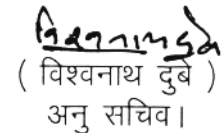 विश्वनाथ दुबे
( विश्वनाथ दुबे )
अनु सचिव।